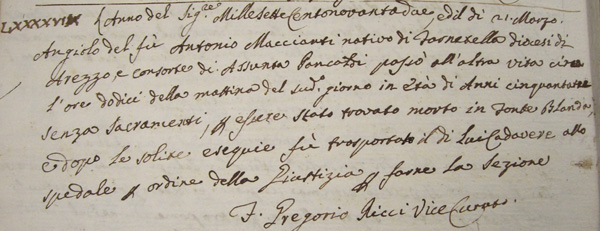 LXXXXVIII L'Anno del Sig.re Mille Sette Cento novanta due, e dil di 21. Marzo.
Angiolo del fù Antonio Maccianti nativo di Farnetella diocesi di
Arezzo e consorte di Assunta passò all'altra vita circa
l'ore dodici della mattina del sud.o giorno in età di Anni cinquanta
senza Sacramenti, p essere stato trovato morto in Fonte Blanda,
e dopo le solite esequie fù trasportato il di Lui Cadavere allo
spedale p ordine della Giustizia p farne la Sezione
F. Gregorio Ricci Vice Curato.